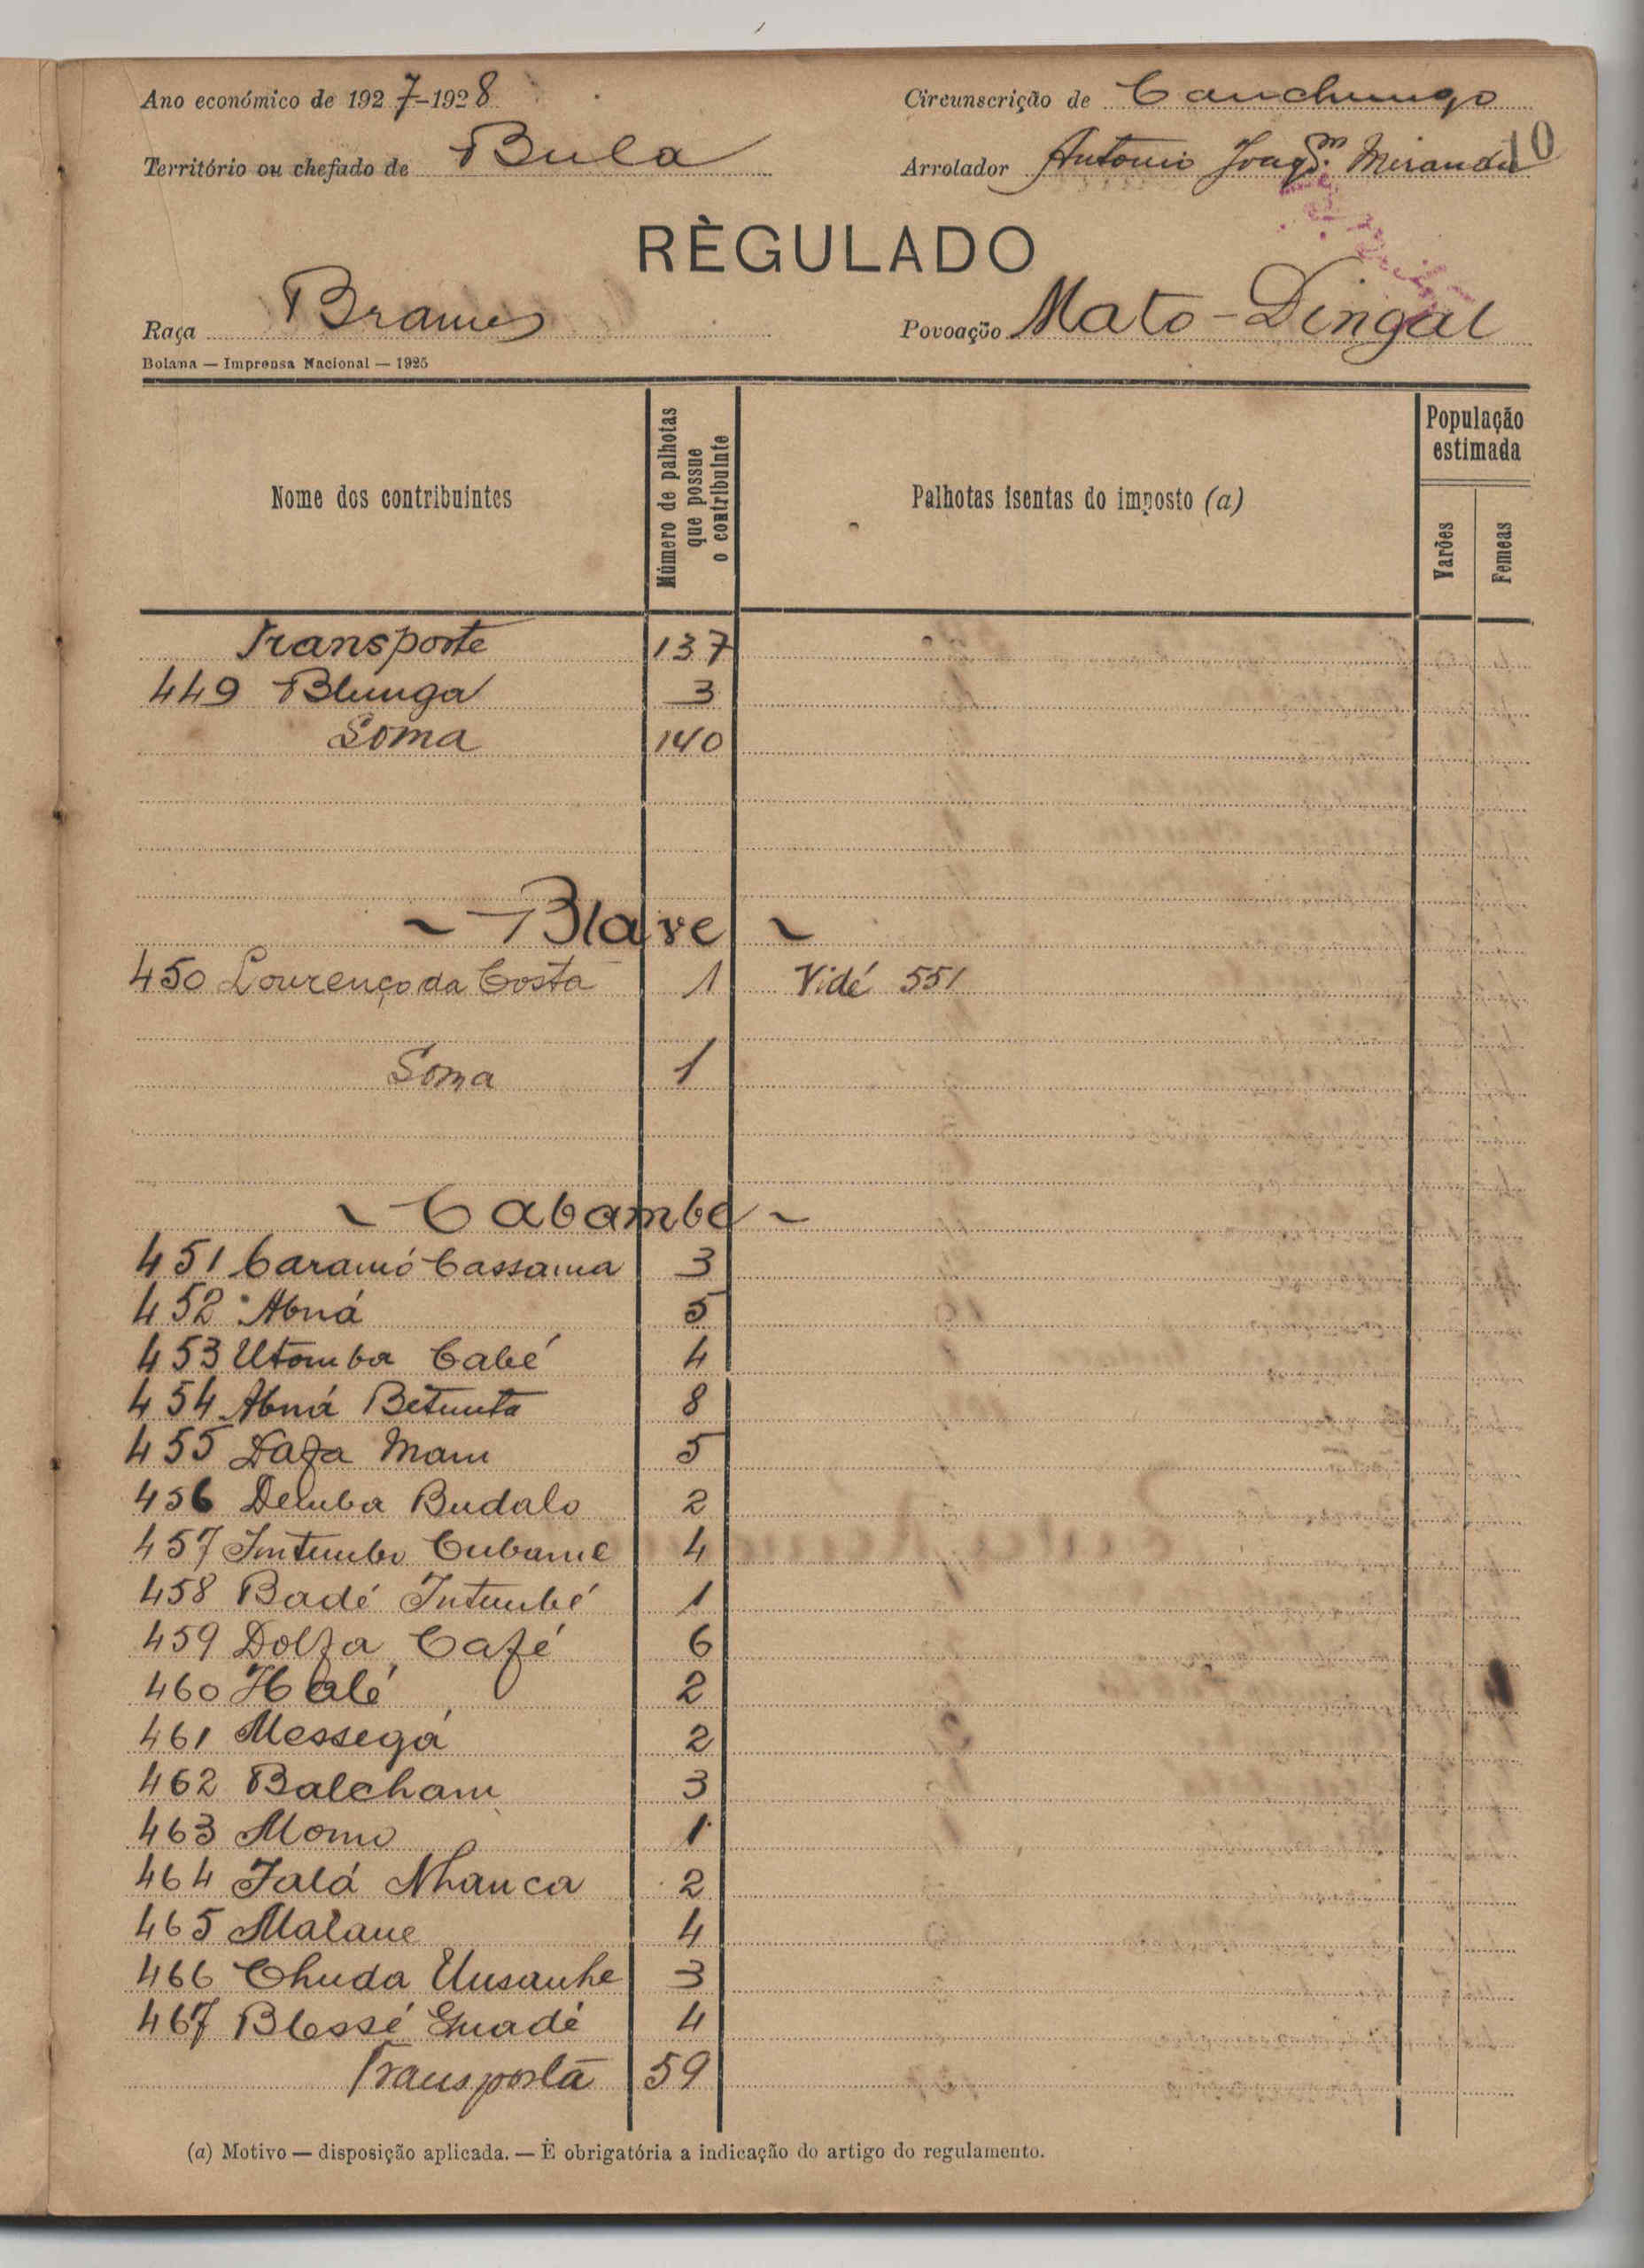 Ano económico de 1927-1928
Circunscrição de Canchungo
10
Território ou chefado de Bula
Arrolador Antonio Joaqm. Miranda
RÈGULADO
Raça Brames
Povoação Mato-Dingal
Bolama — Imprensa Nacional — 1925
Nome dos contribuintes
Número de palhotas que possue o contribuinte
Palhotas isentas do imposto (a)
População estimada
Varões
Femeas
Transporte 137
449 Blunga 3
Soma 140
~ Blave ~
450 Lourenço da Costa 1 Vidé 551
Soma 1
~ Cabambe ~
451 Caramó Cassama 3
452 Abná 5
453 Utomba Cabé 4
454 Abná Betunta 8
455 Dafa Mam 5
456 Demba Budalo 2
457 Intumbo Cubame 4
458 Badé Intumbé 1
459 Dolfa Café 6
460 Halé 2
461 Messegá 2
462 Balcham 3
463 Momo 1
464 Jalá Nhanca 2
465 Malane 4
466 Chuda Unsanhe 3
467 Blessé Guadé 4
Transporta 59
(a) Motivo — disposição aplicada. — É obrigatória a indicação do artigo do regulamento.